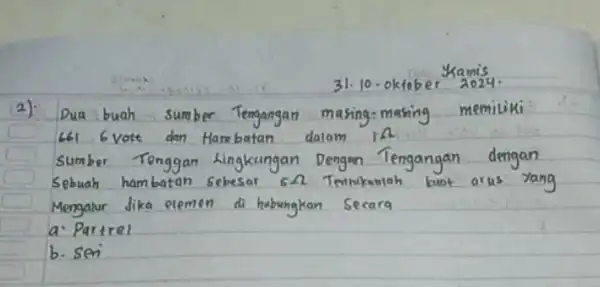 Kamis
31. 10 - oktober 2024.
2). Dua buah sumber Tengangan masing-masing memiliki
661 6 Vote dan Hambatan dalam 1Ω
Sumber Tenggan Lingkungan Dengan Tengangan dengan
Sebuah hambatan sebesar 5Ω Tentukanlah kuat arus yang
Mengalur Jika elemen di hubungkan Secara
a. Partrel
b. Seri